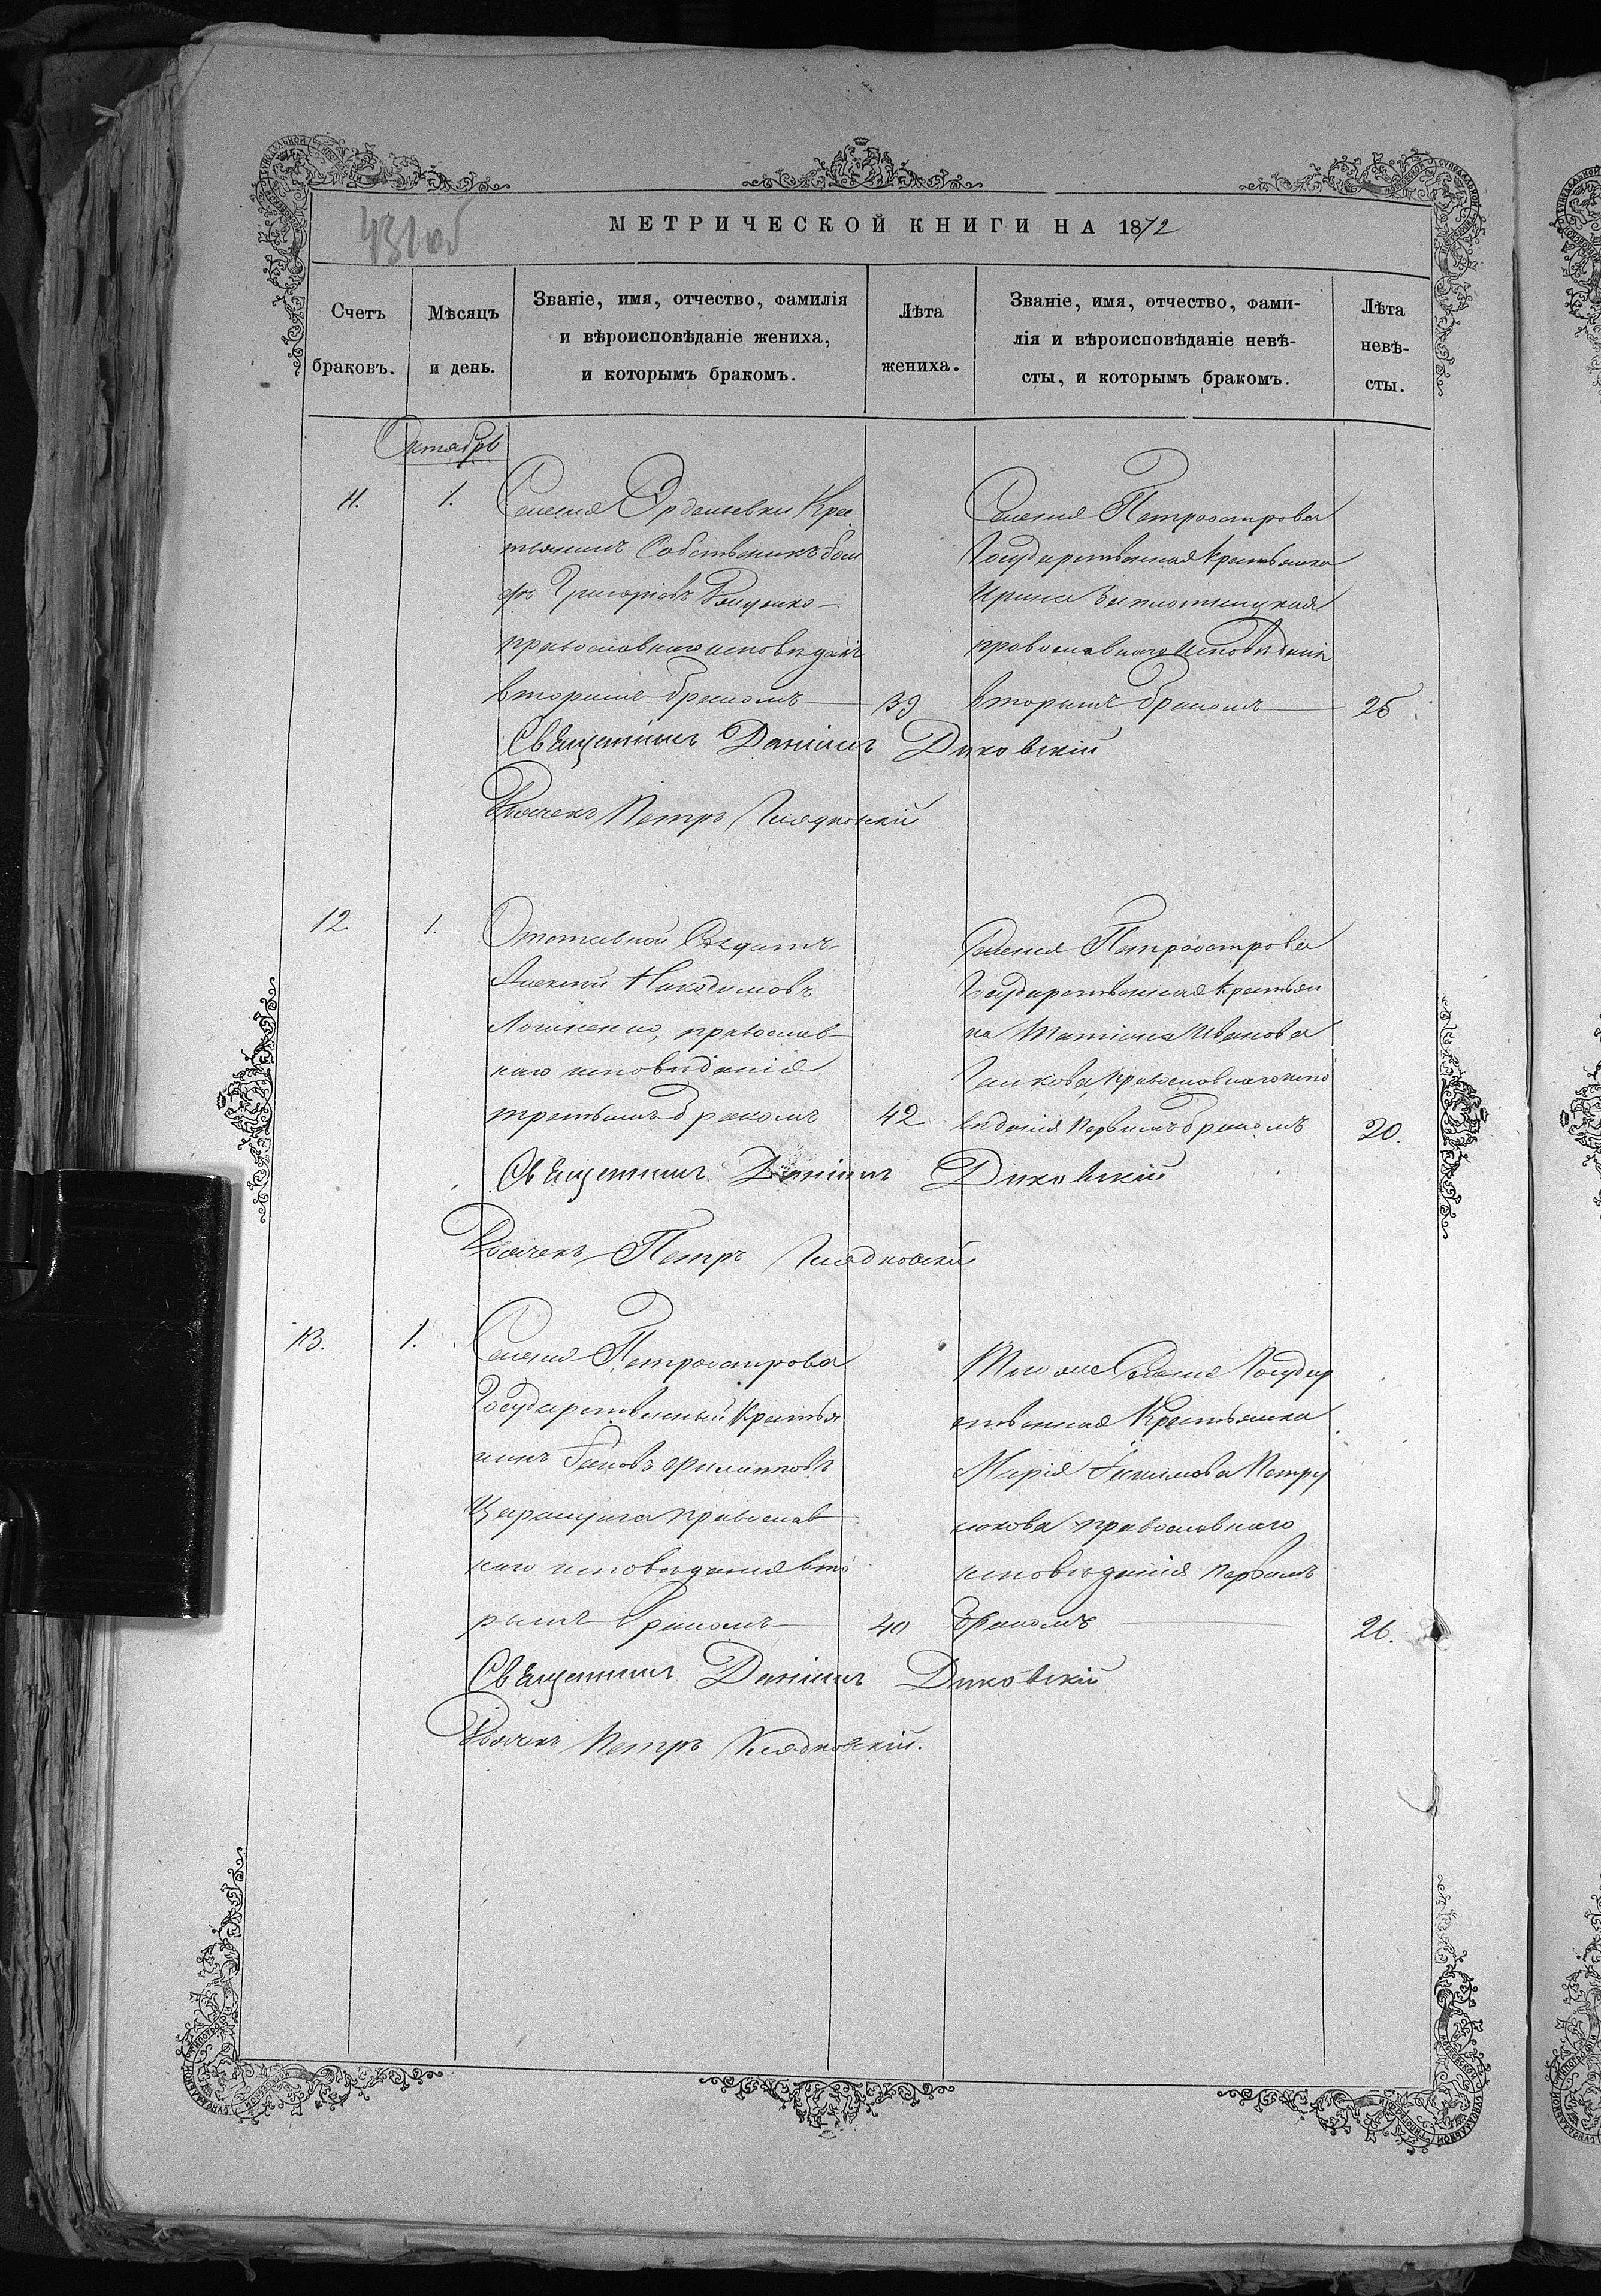 431 об
МЕТРИЧЕСКОЙ КНИГИ НА 1872
Счетъ браковъ.
Мѣсяцъ и день.
Званіе, имя, отчество, фамилія
и вѣроисповѣданіе жениха,
и которымъ бракомъ.
Лѣта жениха.
Званіе, имя, отчество, фами-
лія и вѣроисповѣданіе невѣ-
сты, и которымъ бракомъ.
Лѣта невѣ-
сты.
Октябрь
11.
1.
Селенія Крес
тьянинъ Собственникъ
Григоріевъ
православнаго исповѣданія
вторымъ бракомъ
39
Селенія Петроострова
Государственная крестьянка
Ирина
православнаго исповѣданія
вторымъ бракомъ
25
Священникъ Даніилъ Диковскій
Дьячекъ Петръ
12.
1.
Отставной Солдатъ
Алексій Никодимовъ
православ
наго исповѣданія
третьимъ бракомъ
42
Селенія Петроострова
Государственная крестьян
ка Татіана Иванова
православнаго испо
вѣданія первымъ бракомъ
20.
Священникъ Даніилъ Диковскій
Дьячекъ Петръ
13.
1.
Селенія Петроострова
Государственный Крестья
нинъ Іаковъ
православ
наго исповѣданія вто
рымъ бракомъ
40
Того же Селенія Государ
ственная Крестьянка
Марія
православнаго
исповѣданія первымъ
бракомъ
26.
Священникъ Даніилъ Диковскій
Дьячекъ Петръ